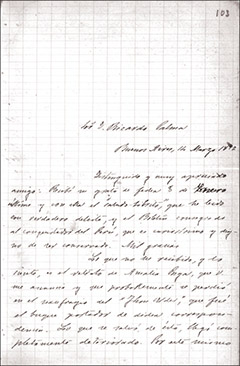 103
Sor D. Ricardo Palma
Buenos Aires, 14 Marzo 189
Distinguido y muy apreciado
amigo: Recibí su grata de fecha 3 de Febrero
último y con ella el
verdadero deleite, y el Boletín consagrado
al conquistador del Perú, que es curiosísimo y dig-
no de ser conservado. Mil gracias.
Lo que no he recibido, y lo
siento, es el retrato de Amalia Puga, que U.
me anuncia y que probablemente se perdió
en el naufragio del "John Elder", que fué
el buque portador de dicha correspon-
dencia. Lo que se salvó de ésta, llegó com-
pletamente deteriorado. Por este mismo